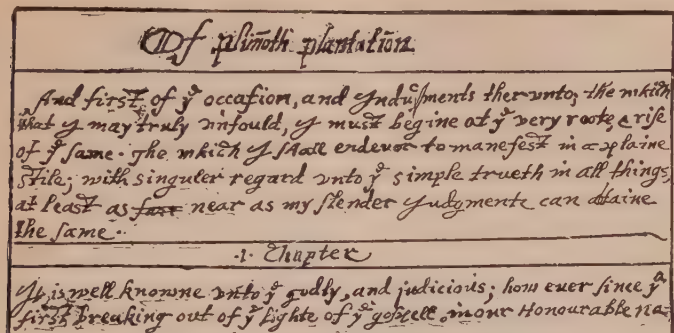 Of plim̄oth plantation
And first of yͤ occasion, and Indusments ther unto; the which
that I may truly unfould, I must begine at yͤ very roote, & rise
of yͤ same. The which I shall endevor to manefest in a plaine
stile; with singuler regard unto yͤ simple trueth in all things,
at least as near as my slender Judgmente can attaine
the same.
.1. Chapter
It is well knowne unto yͤ godly, and judicious; how ever since yͤ
first breaking out of yͤ lighte of yͤ gospell, in our Honourable na-